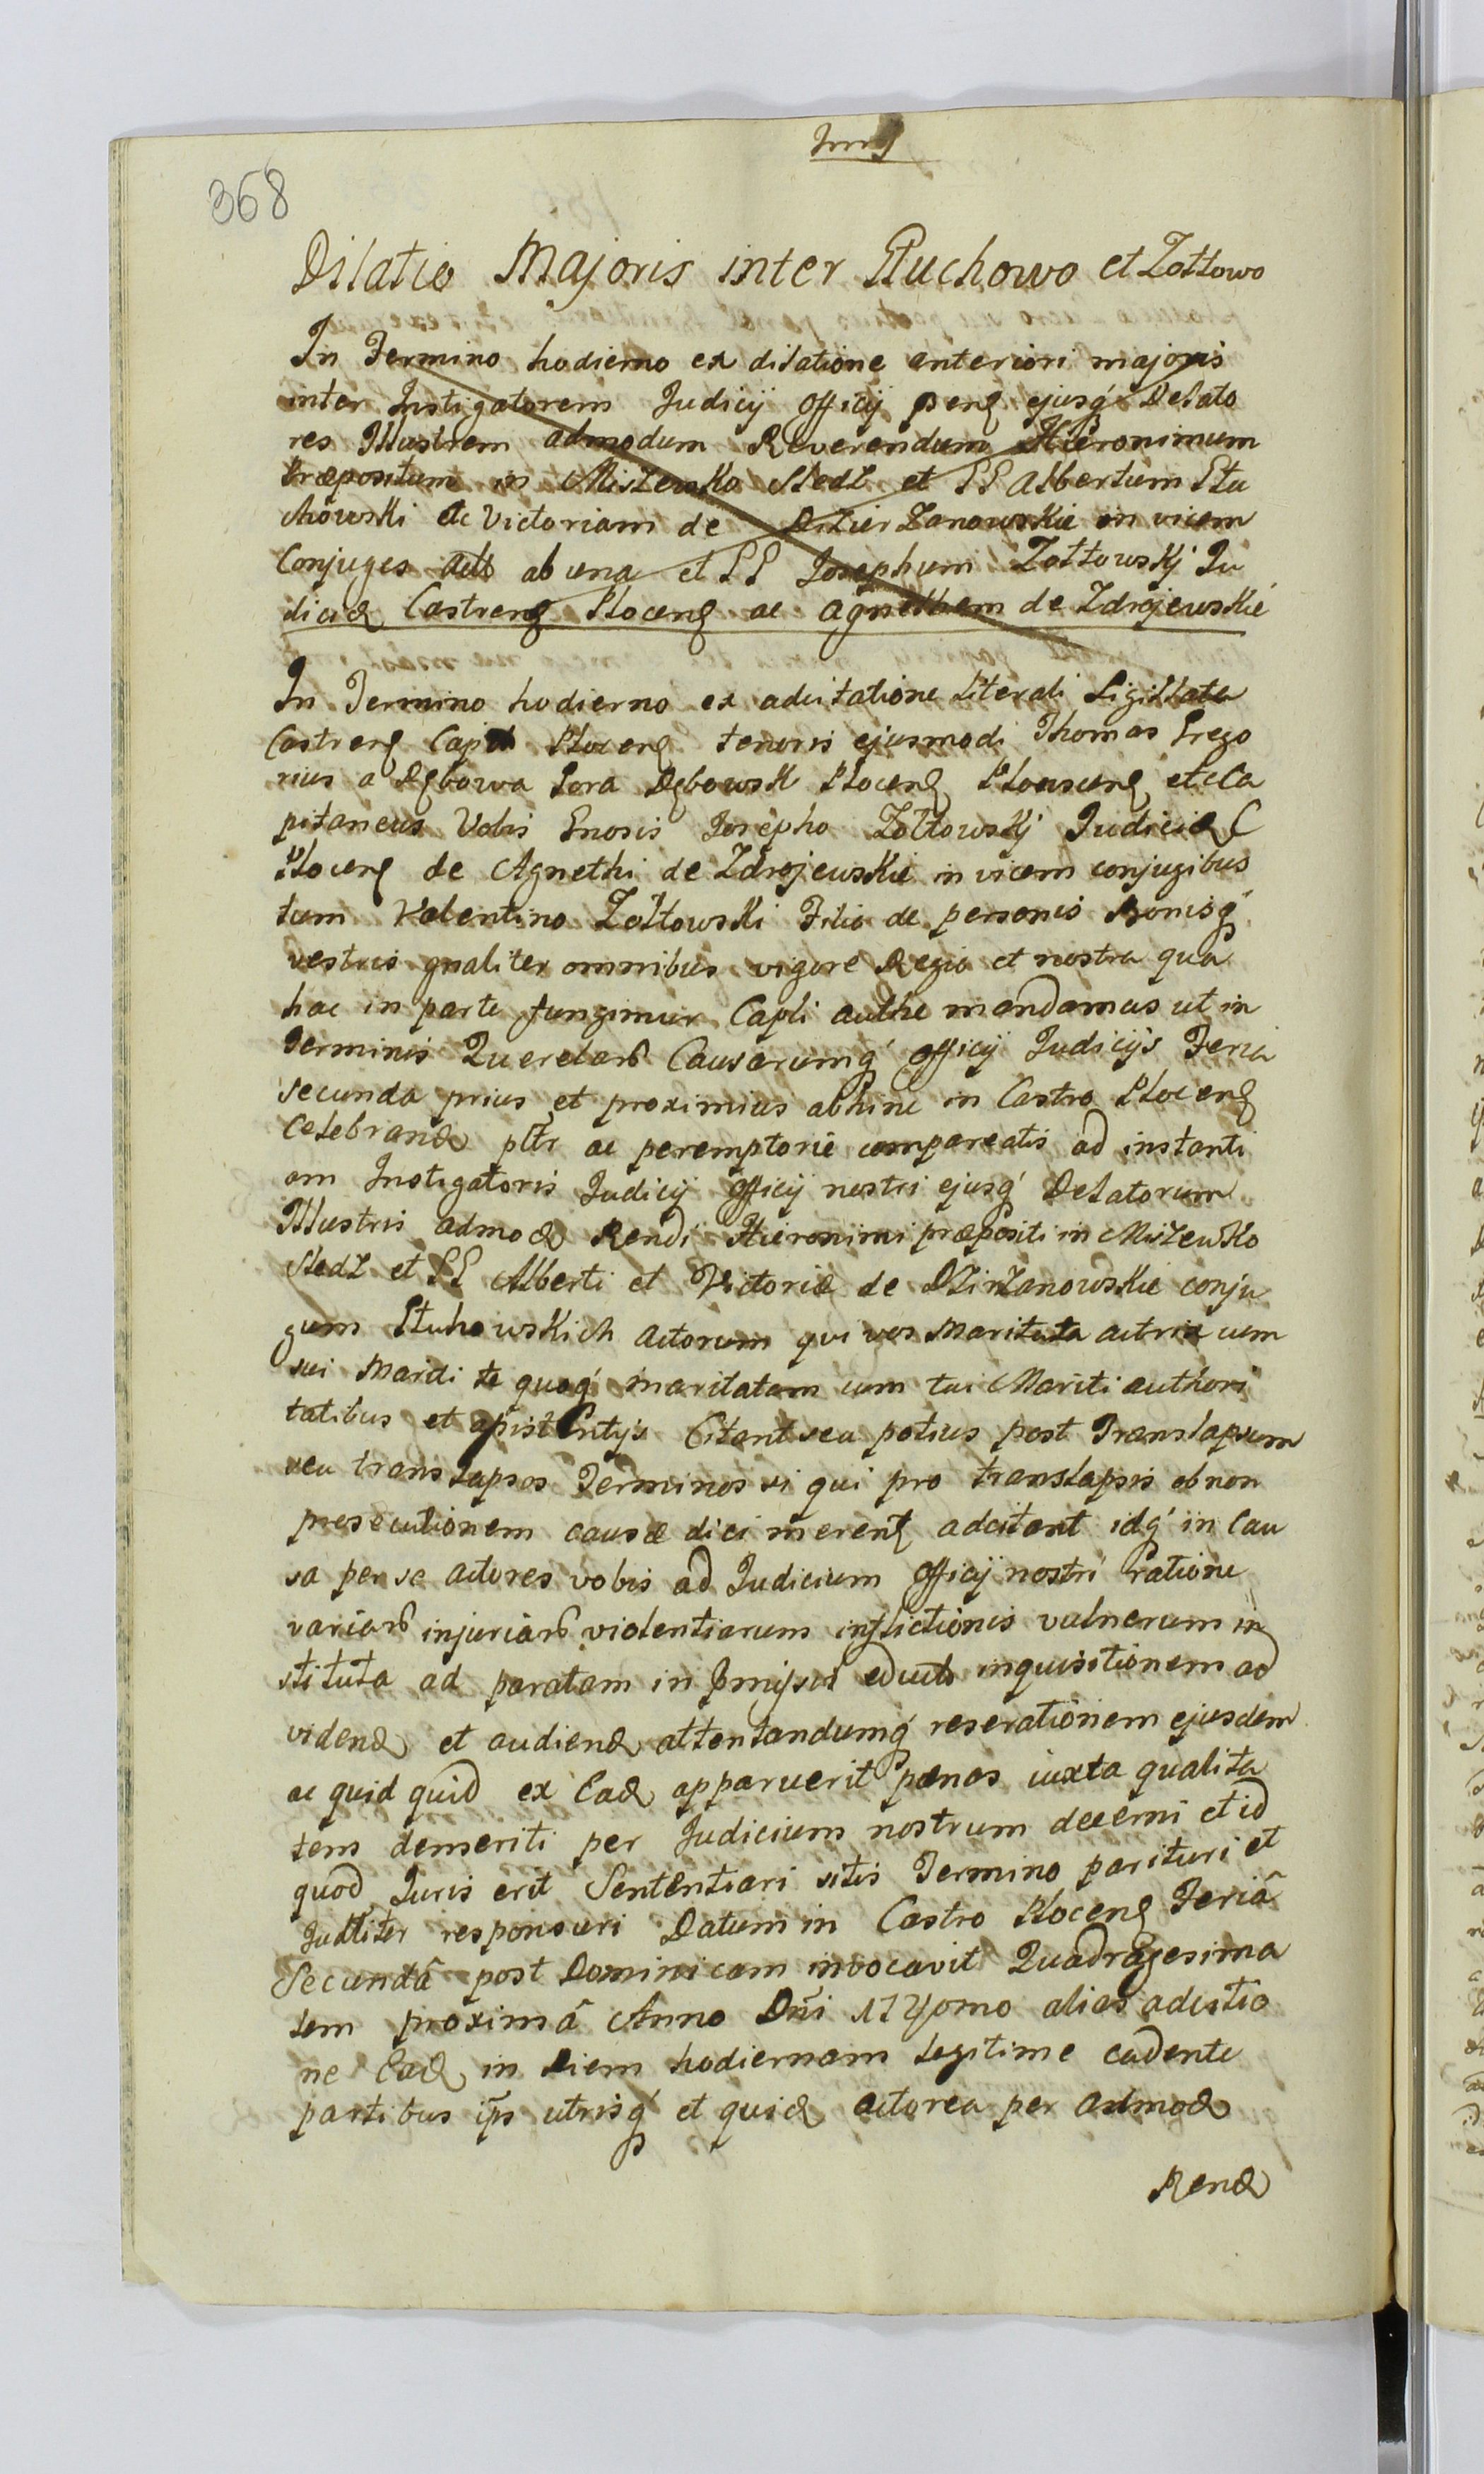 368
Dilatio Majoris inter Pluchowo et Zołtowo
In Termino hodierno ex dilatione anteriori majoris
inter Instigatorem Judicij Officij ejusq́ Delato
res Illustrem admodum Reverendum Hieronimum
Præpositum in Miszewko Stedz et Albertum Stu
chowski ac Victoriam de in vicem
Conjuges ab una et Josephum Zołtowskj Ju
Castrenẽ Plocenẽ ac Agnethem de Zdrojewskie
In Termino hodierno ex adcitatione literali Sigillata
Castrenẽ Plocenẽ tenoris ejusmodi Thomas Grego
rius a Dębowa Gora Dębowsk Plocenẽ etc Ca
pitaneus Vobis Gnosis Josepho Zołtowskj
Plocenẽ de Agnethi de Zdrojewskie in vicem conjugibus
tum Valentino Zołtowski Filio de personis Bonisq́
vestris gnaliter omnibus vigore Regia et nostra qua
hac in parte fungimur Capli authe mandamus ut in
Terminis Querelarũ Causarumq́ Officij Judicijs Feria
secunda prius et proximius abhinc in Castro Plocenẽ
Celebranđ ac peremptorie compareatis ad instanti
am Instigatoris Judicij Officij nostri ejusq́ Delatorum
Illustris admođ Rendi Hieronimi præpositi in Miszewko
Stedz et Alberti et Victoriæ de Dzirzanowskie conju
gum Stuhowskich actorum qui vos maritata actrix cum
sui te quoq́ maritatam cum tui Mariti authori
tatibus et Citant seu potius post Translapsum
seu translapsos Terminos si qui pro translapsis ob non
prosecutionem causæ dici merent adcitant idq́ in Cau
sa per se actores vobis ad Judicium Officij nostri ratione
variarũ injuriarũ violentiarum inflictionis vulnerum in
stituta ad paratam in inquisitionem ad
videnđ et audienđ attentandumq́ reserationem ejusdem
ac quid quid ex Eađ apparuerit pænas iuxta qualita
tem demeriti per Judicium nostrum decerni et id
quod Juris erit Sententiari sitis Termino parituri et
Judtliter responsuri Datum in Castro Plocenẽ Feriâ
Secundâ post Dominicam invocavit Quadragesima
lem proximâ Anno Dñi alias adcitatio
ne Eađ in Diem hodiernam legitime cadente
partibus utrisq́ et quiđ actorea per admođ
Renđ